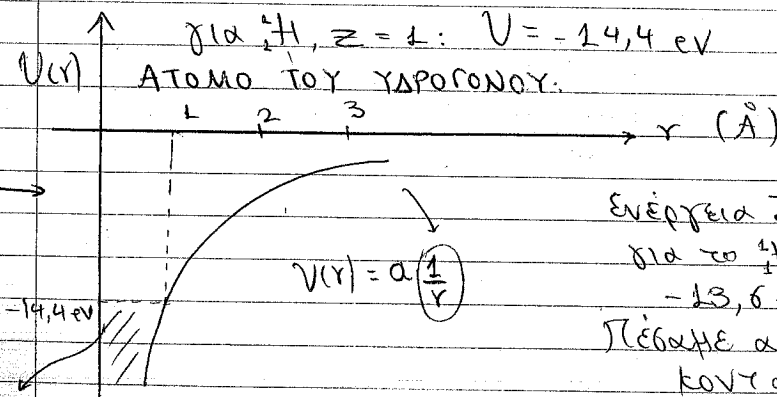 για ¹₁H, Z = 1: U = -14,4 eV
U(r) ΑΤΟΜΟ ΤΟΥ ΥΔΡΟΓΟΝΟΥ:
1 2 3
r (Å)
U(r) = α 1/r
-14,4 eV
Ενέργεια
για το ¹₁
-13,6
Πέσαμε α
κοντ